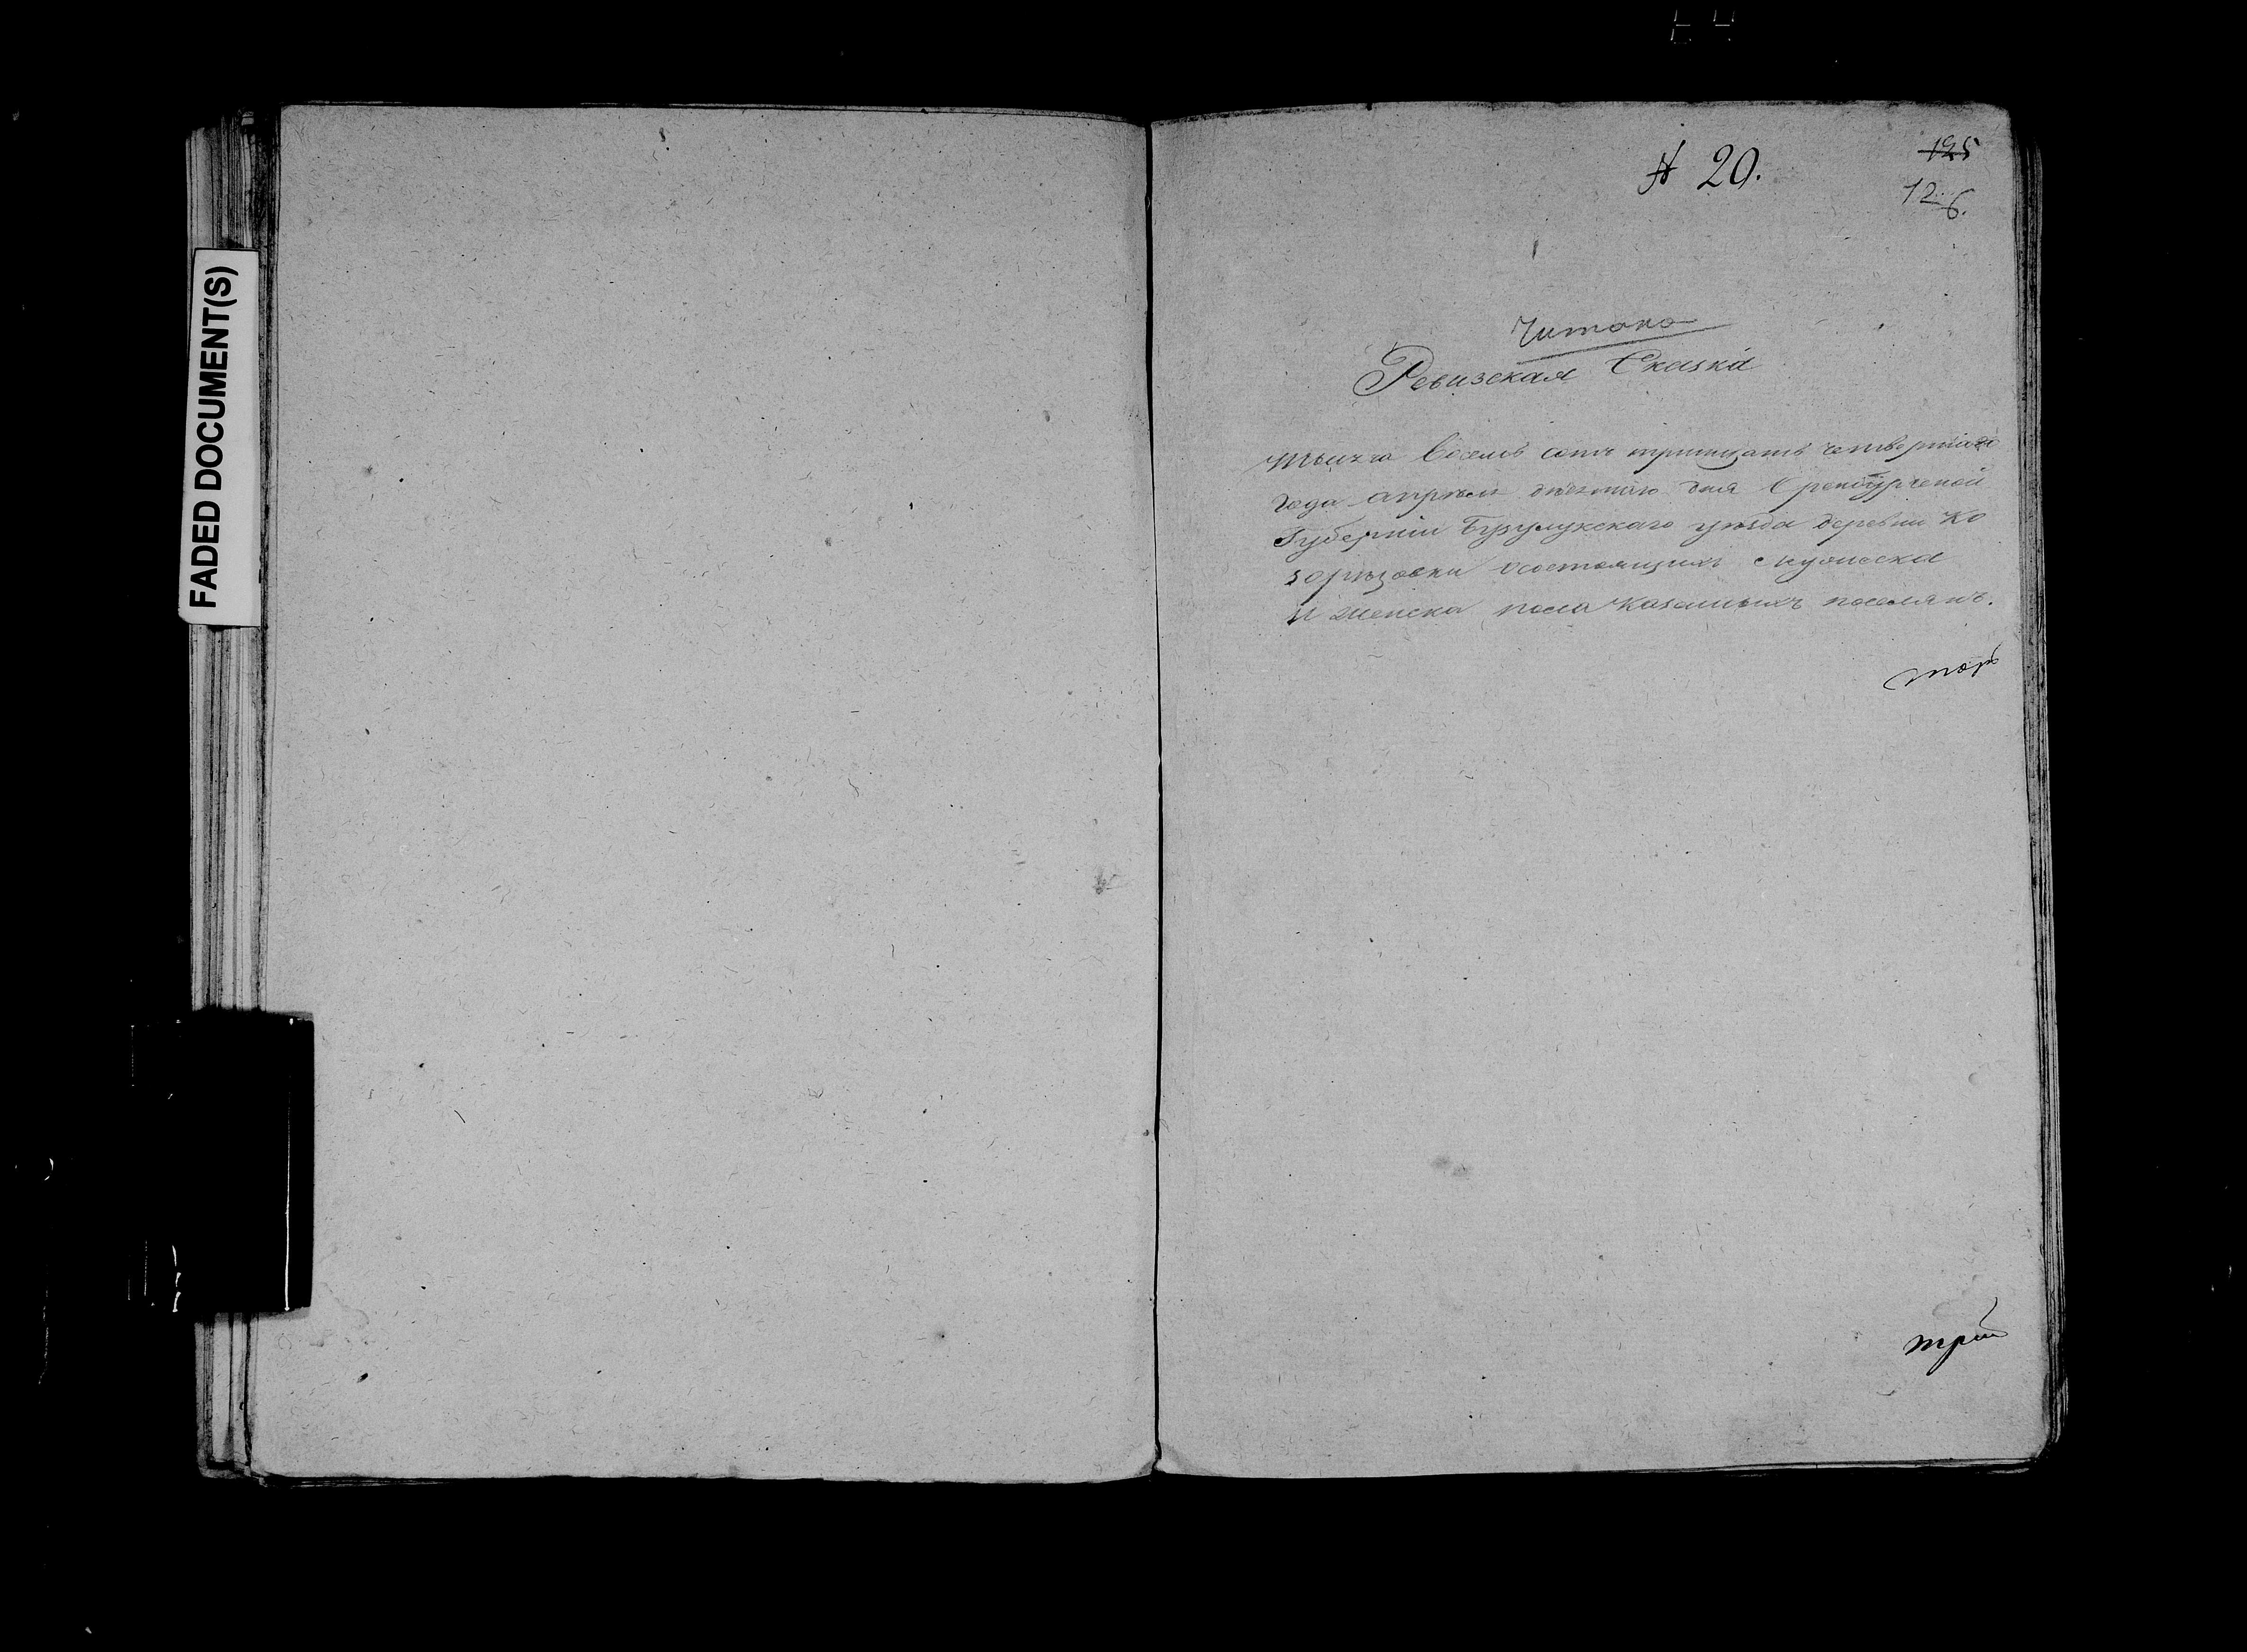 FADED DOCUMENT(S)
№ 20.
125
126.
Читано
Ревизская Сказка
Тысяча восемь сотъ тритцать четвертаго
года апреля дня Оренбургской
Губернии Бузулукскаго уѣзда деревни Ко
состоящихъ мужеска
и женска пола казенныхъ поселянъ.